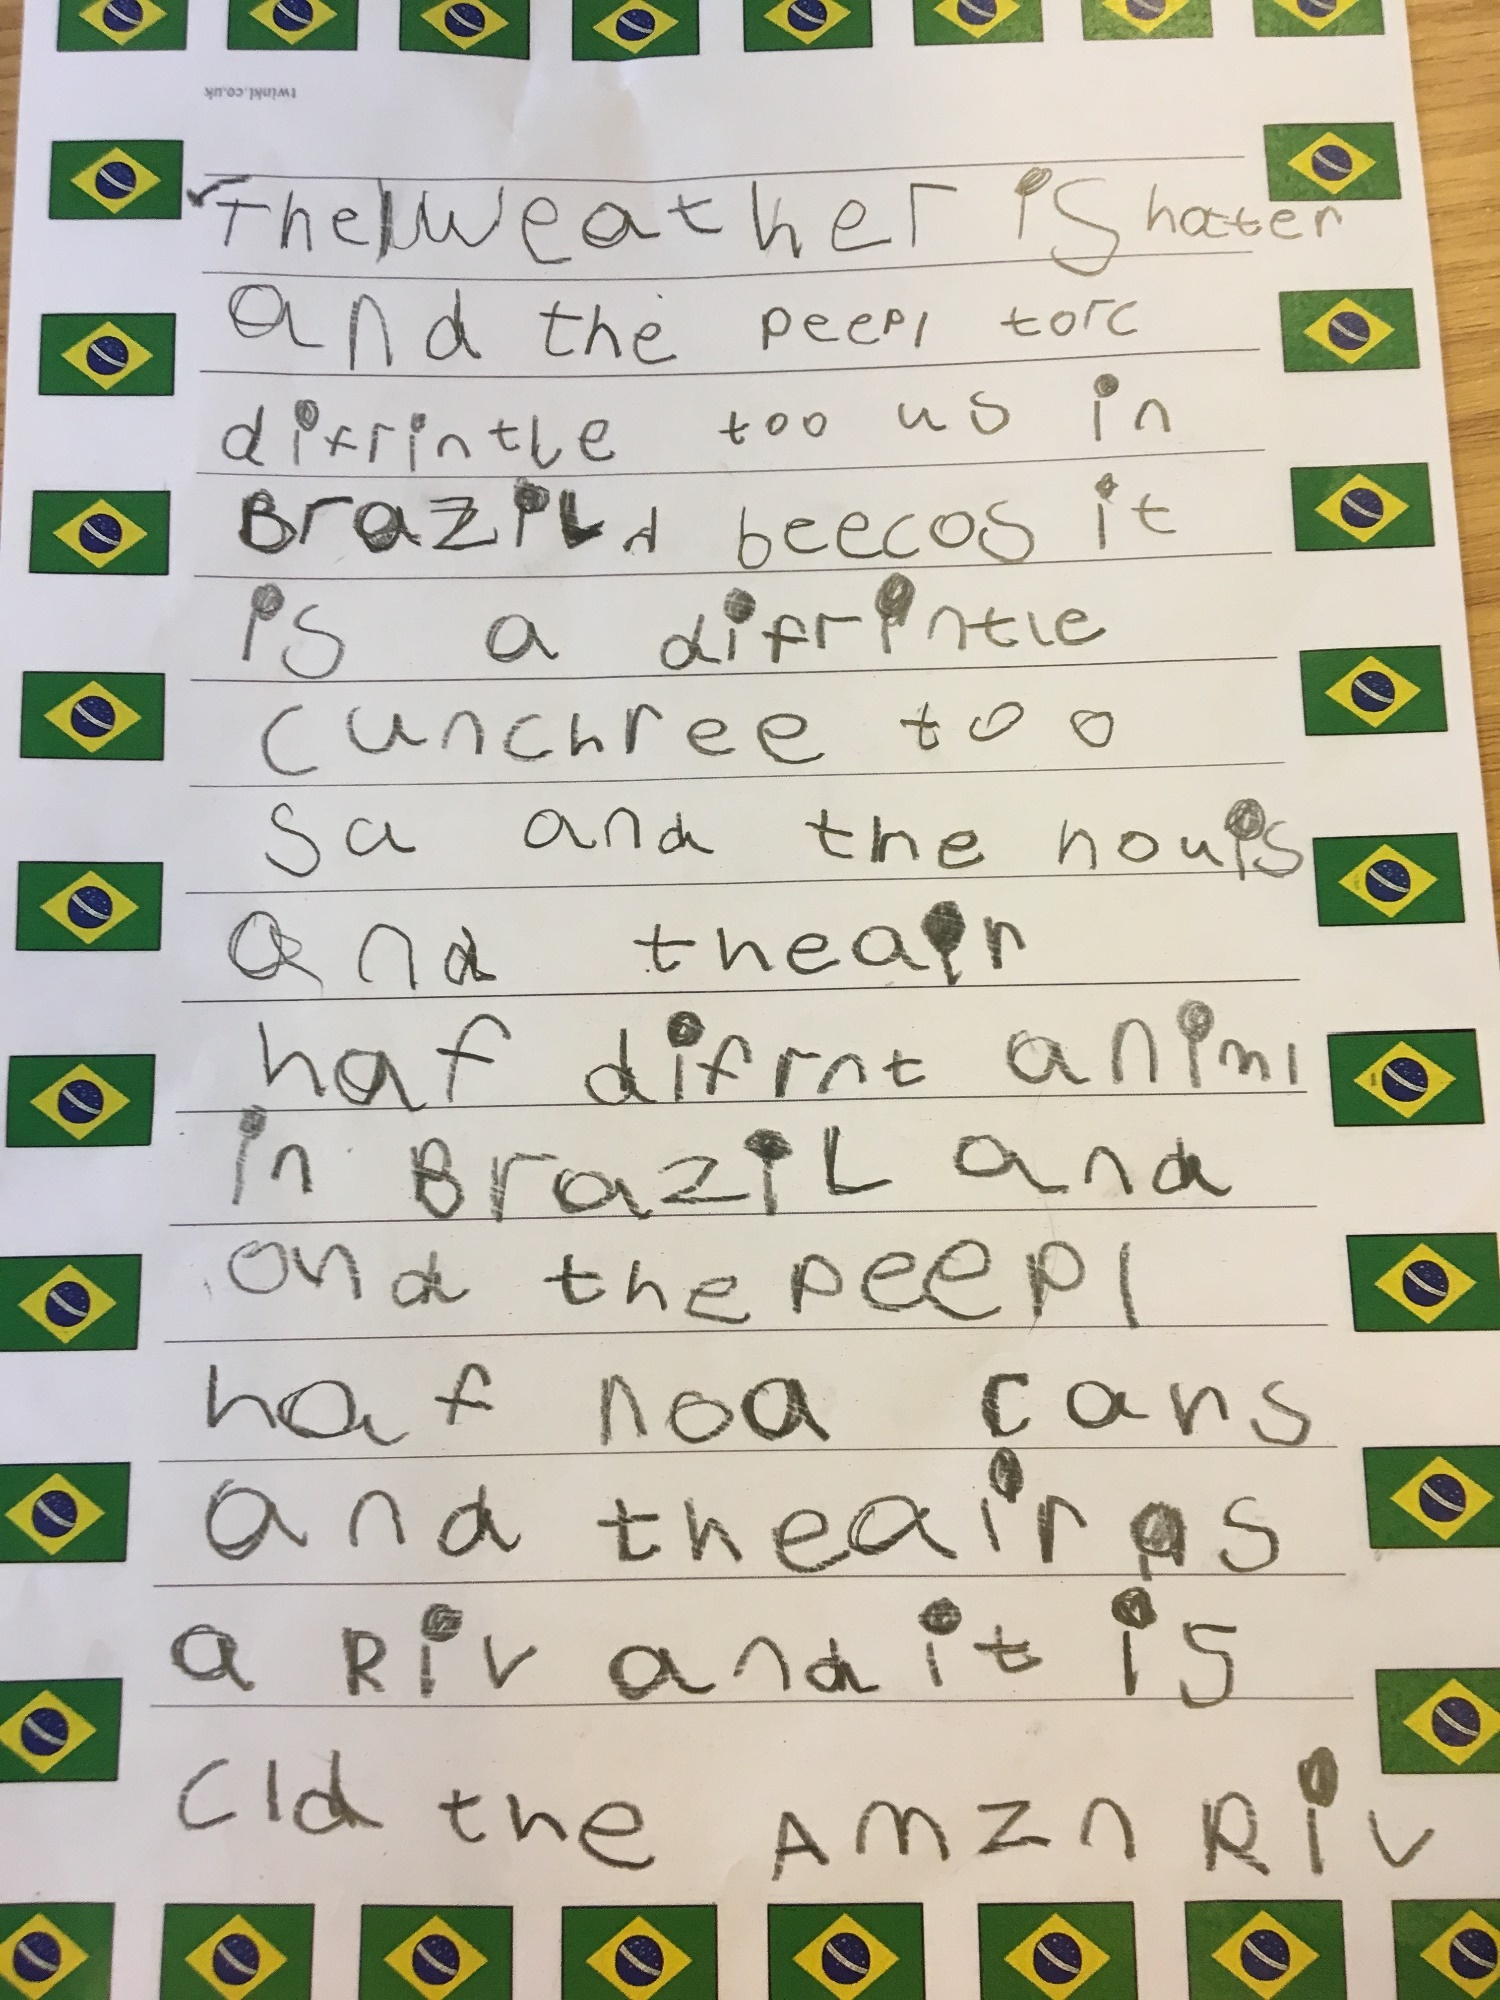 twinkl.co.uk
The weather is hoter
and the peepl torc
difrintle too us in
BraziL d beecos it
is a difrintle
cunchree too
sa and the houis
and theair
haf difrnt animl
in BraziL and
and the peepl
haf noa cars
and theair as
a Riv and it is
cld the Amzn Riv